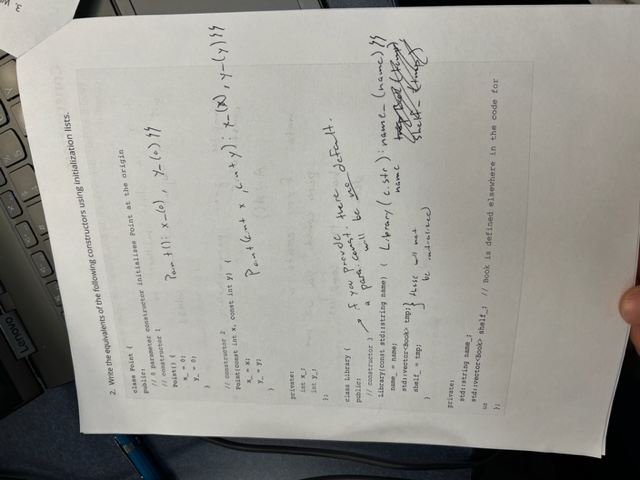 Lenovo
3.
2. Write the equivalents of the following constructors using initialization lists.
class Point {
public:
// 0 parameter constructor initializes Point at the origin
// constructor 1
Point() {
x_ = 0;
y_ = 0;
}
Point(): x_(0), y_(0) {}
// constructor 2
Point(const int x, const int y) {
x_ = x;
y_ = y;
}
Point(int x, int y): x_(x), y_(y) {}
private:
int x_;
int y_;
};
class Library {
public:
// constructor 3
if you provide
a para. const. there
will be no default.
Library(const std::string name) {
name_ = name;
std::vector<Book> tmp;
shelf_ = tmp;
}
these will not
be initialized
Library (c.str): name_(name) {}
name
shelf_ (tmp)
private:
std::string name_;
std::vector<Book> shelf_; // Book is defined elsewhere in the code for
us
};